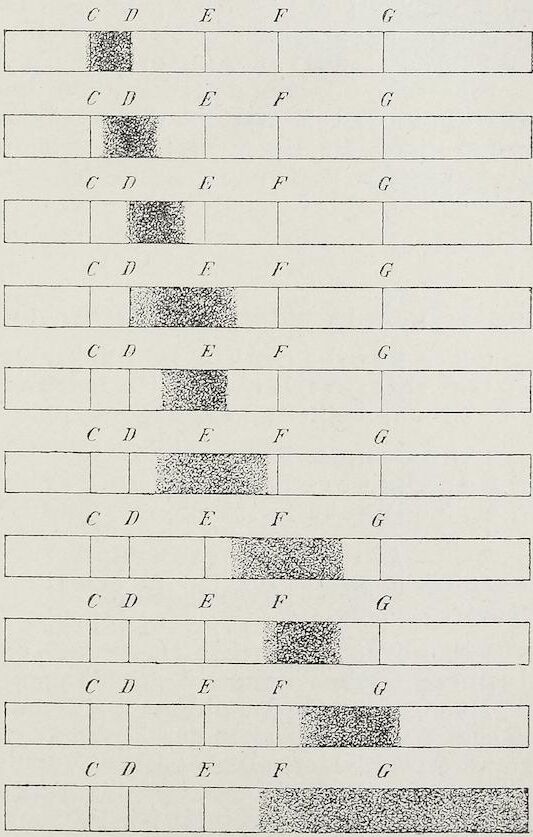 C D E F G
C D E F G
C D E F G
C D E F G
C D E F G
C D E F G
C D E F G
C D E F G
C D E F G
C D E F G